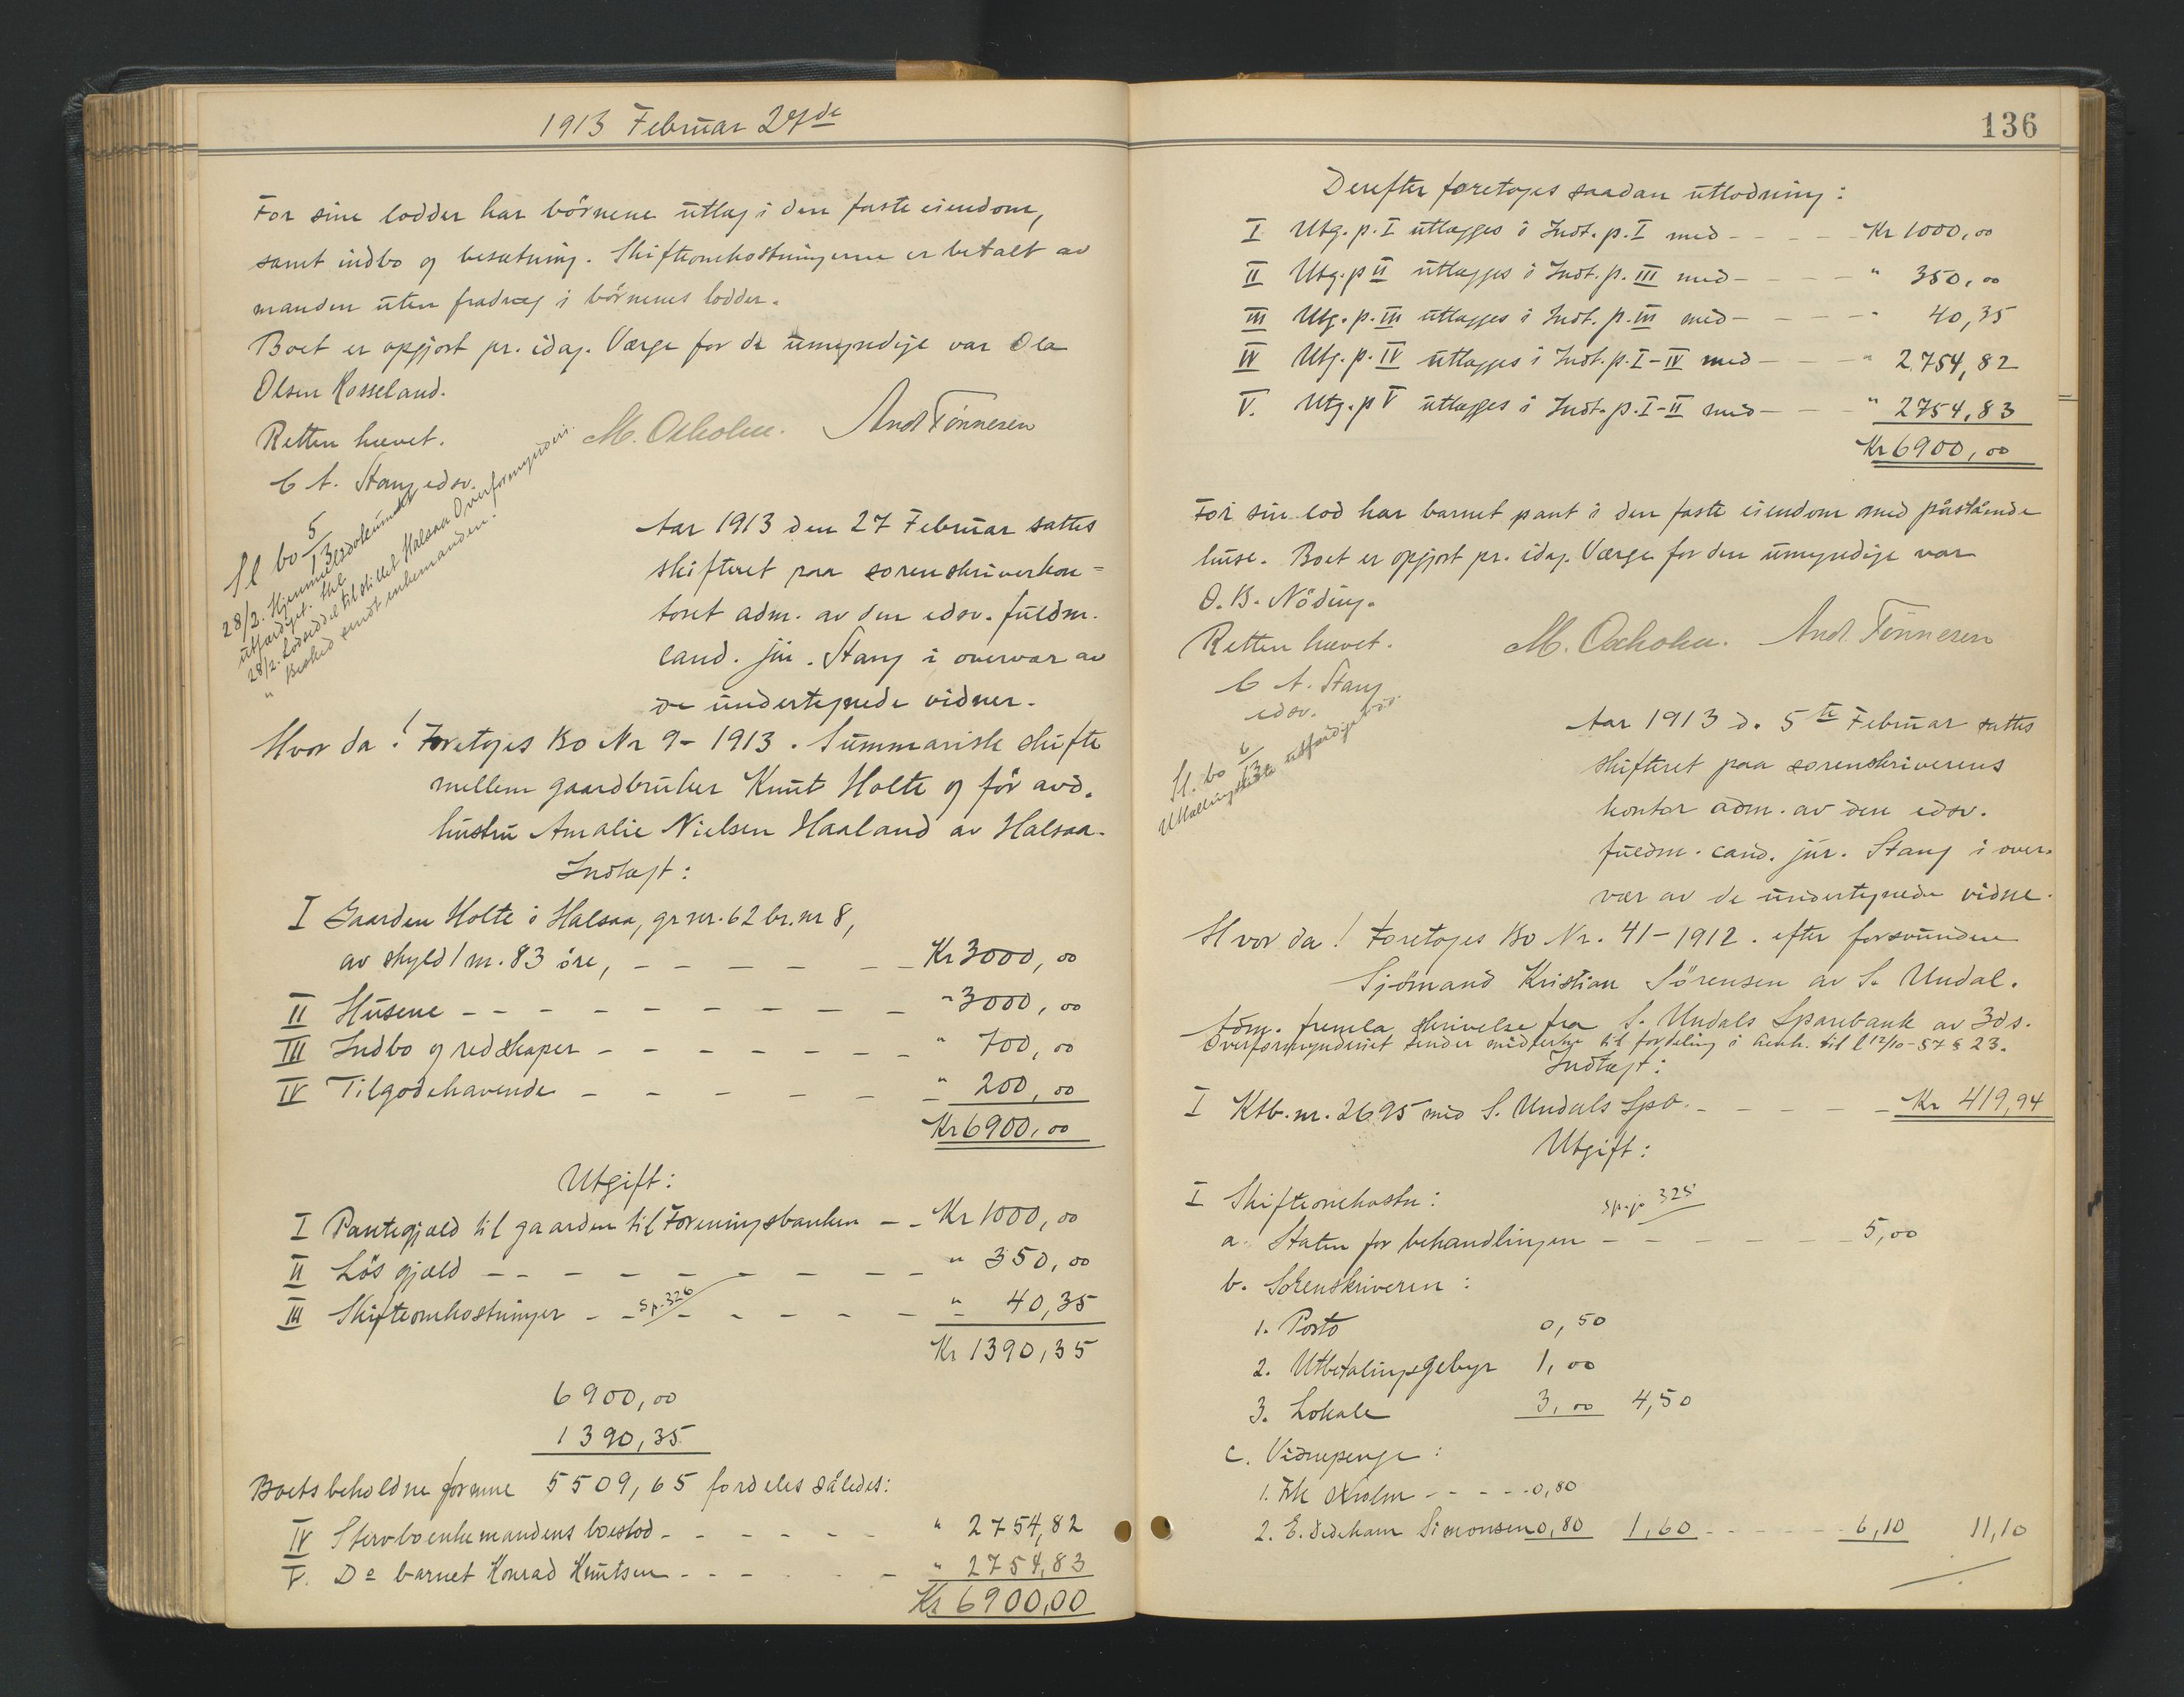 1913 Februar 27de
For sine lodder har börnene utlæg i den faste eiendom,
samt indbo og besætning. Skifteomkostningerne er betalt av
manden uten fradrag i börnenes lodder.
Boet er opgjort pr. idag. Værge for de umyndige var Ola
Olsen Rosseland.
Retten hævet.
M. Oxholm. And Tönnesen
C A. Stang edsv.
Sl bo 5/13
28/2. Hjemmelsdokument
utfærdiget.
28/2. Lodseddel tilstillet Halsaa Overformynderi.
" Beskid sendt enkemanden.
Aar 1913 den 27 Februar sattes
skifteret paa sorenskriverkon=
toret adm. av den edsv. fuldm.
cand. jur. Stang i overvær av
de undertegnede vidner.
Hvor da! Foretoges Bo Nr 9-1913. Summarisk skifte
mellem gaardbruker Knut Holte og før avd.
hustru Amalie Nielsen Haaland av Halsaa.
Indtægt:
I Gaarden Holte i Halsaa, gr nr. 62 br. nr 8,
av skyld 1 m. 83 öre, - - - - - - Kr 3000,00
II Husene - - - - - - - - - " 3000,00
III Indbo og redskaper - - - - - - - " 700,00
IV Tilgodehavende - - - - - - " 200,00
Kr 6900,00
Utgift:
I Pantegjæld til gaarden til Foreningsbanken - - Kr 1000,00
II Lös gjæld - - - - - - - - - " 350,00
III Skifteomkostninger - - sp. 326 - - - - - " 40,35
Kr 1390,35
6900,00
1390,35
Boets beholdne formue 5509,65 fordeles således:
IV Stervboenkemandens boeslod - - - - - - " 2754,82
V. Do barnet Konrad Knutsen - - - - - " 2754,83
Kr 6900,00
136
Derefter foretages saadan utlodning:
I Utg. p. I utlægges i Indt. p. I med - - - - Kr 1000,00
II Utg. p II utlægges i Indt. p. III med - - - - " 350,00
III Utg. p. III utlægges i Indt. p. III med - - - - " 40,35
IV Utg. p. IV utlægges i Indt. p. I-IV med - - - " 2754,82
V. Utg. p V utlægges i Indt. p. I-II med - - - " 2754,83
Kr 6900,00
For sin lod har barnet pant i den faste eiendom med påstående
huse. Boet er opgjort pr. idag. Værge for den umyndige var
O. B. Nöding.
Retten hævet.
M. Oxholm. And. Tönnesen
C A. Stang
edsv.
Sl. bo 6/13
Utfærdiget
Aar 1913 d. 5te Februar sattes
skifteret paa sorenskriverens
kontor adm. av den edsv.
fuldm. cand. jur. Stang i over-
vær av de undertegnede vidne.
Hvor da! Foretoges Bo Nr. 41-1912. efter forsvundne
Sjömand Kristian Sörensen av S. Undal.
Adm. fremla skrivelse fra S. Undals Sparebank av 3ds.
Overformynderiet sender midlerne til fordeling i henh. til l 12/10-57 § 23.
Indtægt:
I Ktb. nr. 2695 med S. Undals Spb. - - - - - Kr 419,94
Utgift:
I Skifteomkostn:
sp. js 325
a. Staten for behandlingen - - - - - - 5,00
b. Sorenskriveren:
1. Porto 0,50
2. Utbetalingsgebyr 1,00
3. Lokale 3,00 4,50
c. Vidnepenge:
1. Frk Oxholm - - - - 0,80
2. E. Simonsen 0,80 1,60 - - - - - 6,10 11,10